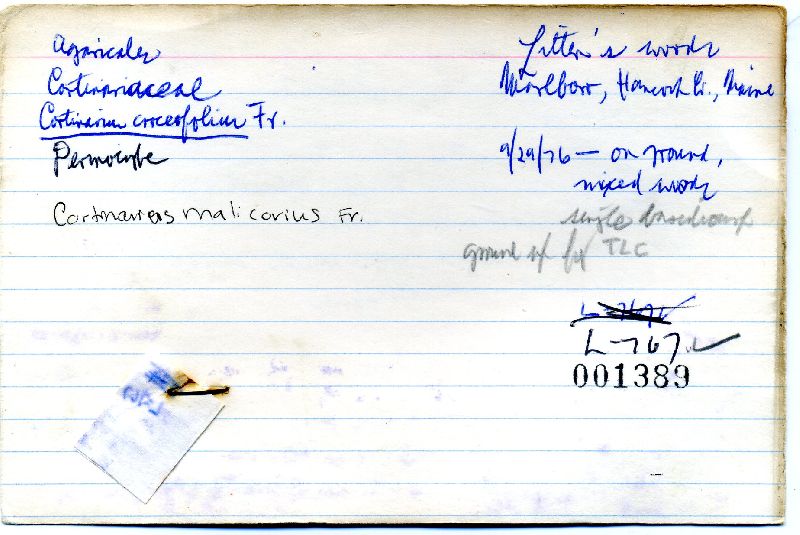 Agaricales
Cortinariaceae
Cortinarius croceofolius Fr.
Dermocybe
Cortinarius malicorius Fr.
Litten's woods
Marlboro, Hancock Co., Maine
9/29/76 — on ground,
mixed woods
single basidiocarp
ground up for TLC
L-767
001389